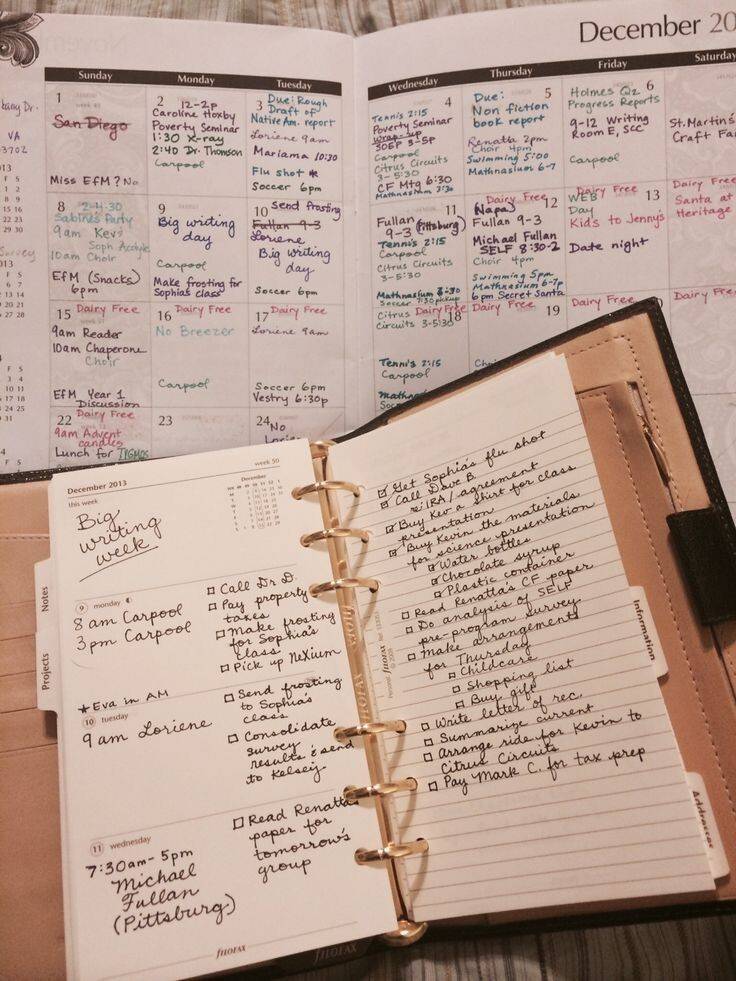 December 20
Sunday
Monday
Tuesday
Wednesday
Thursday
Friday
Saturday
VA
1
San Diego
Miss EfM? No
2
12-2p
Caroline Hoxby
Poverty Seminar
1:30 X-ray
2:40 Dr. Thomson
Carpool
3
Due: Rough
Draft of
Native Am. report
Loriene 9am
Mariama 10:30
Flu shot
Soccer 6pm
4
Tennis 2:15
Poverty Seminar
wrap-up
3-5p
Carpool
Citrus Circuits
3-5:30
CF Mtg 6:30
Mathnasium
5
Due:
Non fiction
book report
Renatta 2pm
Choir 4pm
Swimming 5:00
Mathnasium 6-7
6
Holmes Q2
Progress Reports
9-12 Writing
Room E, SCC
Carpool
St. Martin's
Craft Fai
8
2-4:30
Sabine's Party
9am Kev's
Soph Acolyte
10am Choir
EfM (Snacks)
6pm
9
Big writing
day
Carpool
Make frosting for
Sophia's class
10
Send frosting
Fullan 9-3
Loriene
Big Writing
day
Soccer 6pm
11
Fullan
9-3 (Pittsburg)
Tennis 2:15
Carpool
Citrus Circuits
3-5:30
Mathnasium
Soccer 7:30 pickup
12
Dairy Free
(Napa)
Fullan 9-3
Michael Fullan
SELF 8:30-2
Choir 4pm
Swimming 5pm
Mathnasium 6-7p
6pm Secret Santa
13
Dairy Free
WEB
Day
Kids to Jenny's
Date night
Dairy Free
Santa at
Heritage
15
Dairy Free
9am Reader
10am Chaperone
Choir
EfM Year 1
Discussion
16
Dairy Free
No Breezer
Carpool
17
Dairy Free
Loriene 9am
Soccer 6pm
Vestry 6:30p
18
Dairy Free
Citrus
Circuits 3-5:30
Tennis 2:15
Carpool
Soccer
19
Dairy Free
Dairy Free
Dairy Free
22
Dairy Free
9am Advent
candles
Lunch for
23
24
No
December 2013
week 50
this week
December
Big
writing
week
9 monday
8 am Carpool
3 pm Carpool
☐ Call Dr D.
☐ Pay property
taxes
☐ Make frosting
for Sophia's
class
☐ Pick up Nexium
★ Eva in AM
10 tuesday
9 am Loriene
☐ Send frosting
to Sophia's
class
☐ Consolidate
survey
results & send
to Kelsey
11 wednesday
7:30am-5pm
Michael
Fullan
(Pittsburg)
☐ Read Renatta
paper for
tomorrow's
group
filofax
Notes
Projects
☑ Get Sophia's flu shot
☑ Call Dave B.
re: IRA/agreement
☑ Buy Kev a shirt for class
presentation
☑ Buy Kevin the materials
for science presentation
☑ Water bottles
☑ Chocolate syrup
☑ Plastic container
☐ Read Renatta's CF paper
☐ Do analysis of SELF
pre-program survey
☐ Make arrangements
for Thursday
☐ Childcare
☐ Shopping list
☐ Buy gift
☐ Write letter of rec.
☐ Summarize current
☐ Arrange ride for Kevin to
Citrus Circuits
☐ Pay Mark C. for tax prep
Information
Addresses